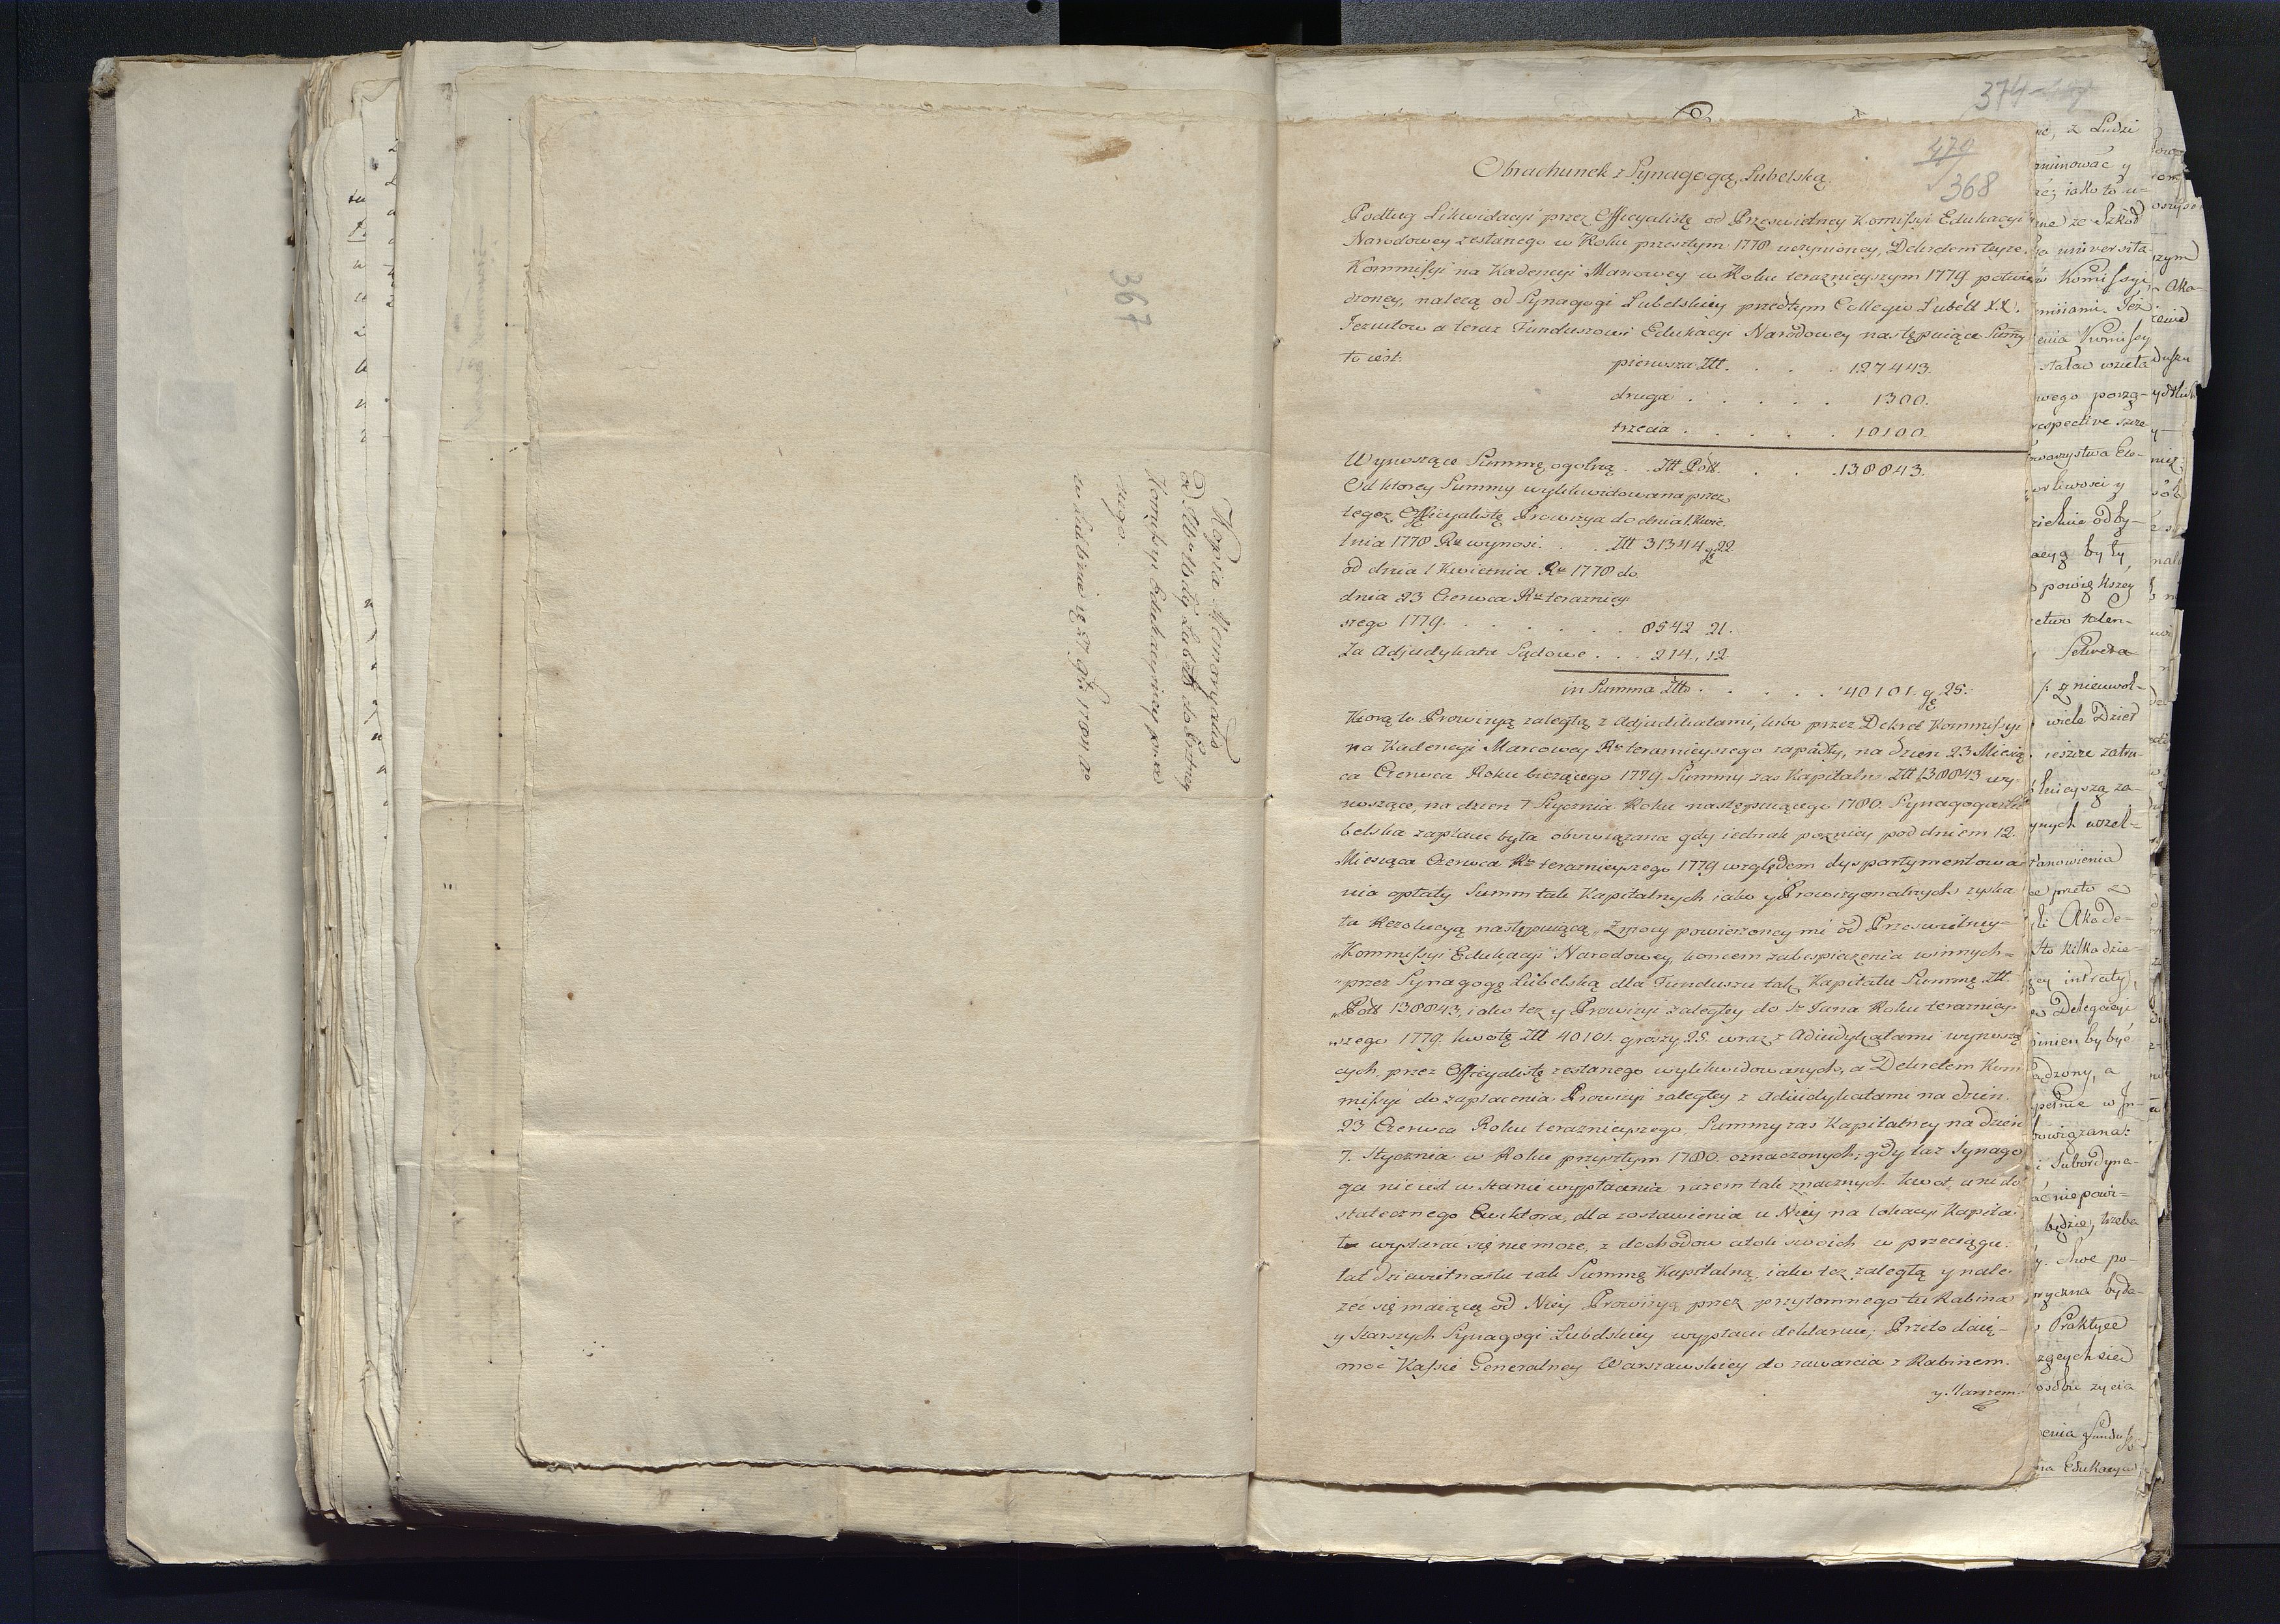 367
Kopia Memoryału
od Szkoły Lubell. do Prztney
Kommissyi Edukacyiney poda
nego.
w Lublinie
374
470
368
Obrachunek z Synagogą Lubelską.
Podług Likwidacyi przez Officyalistę od Prześwietney Komissyi Edukacyi
Narodowey zesłanego w Roku przeszłym 1778 uczynioney, Dekretem teyże
Kommissyi na Kadencyi Marcowey w Roku teraznieyszym 1779. potwier
dzoney, należą od Synagogi Lubelskiey przedtym Collegio Lubell XX.
Jezuitow a teraz Funduszowi Edukacyi Narodowey następuiące Summy
to iest. pierwsza Ztt. . . . 127443.
druga . . . . . 1300.
trzecia . . . . . 10100.
Wynoszące Summę ogolną . . Ztt Poll. . . . 138843.
Od ktorey Summy wylikwidowana przez
tegoz Officyalistę Prowizya do dnia 1. Kwie.
tnia 1778 Ru wynosi. . . Ztt 31344 gr 22.
od dnia 1 Kwietnia Ru 1778 do
dnia 23 Czerwca Ru terazniey
szego 1779. . . . . . . 8542 21.
Za Adjudykata Sądowe . . . 214., 12.
in Summa Ztto . . . . . 40101. gr 25.
Ktorą to Prowizyą zaległą z Adjudikatami, lubo przez Dekret Kommissyi
na Kadencyi Marcowey Ru teraznieyszego zapadły, na dzien 23 Miesią
ca Czerwca Roku biezącego 1779. Summy zas Kapitalne Ztt 138843 wy-
noszące, na dzien 7 Stycznia Roku następuiącego 1780. Synagoga Lu
belska zapłacic była obowiązana gdy iednak pozniey pod dniem 12.
Miesiąca Czerwca Ru teraznieyszego 1779 względem dyspartymentowa
nia opłaty Summ tak Kapitalnych iako y Prowizyonalnych zyska
ła Rezolucyą następuiącą „Z mocy powierzoney mi od Prześwietney
„Kommissyi Edukacyi Narodowey, koncem zabespieczenia winnych
„przez Synagogę Lubelską dla Funduszu tak Kapitału Summę Ztt.
„Poll 138843, iako tez y Prowizyi zaległey do So Jana Roku teraźniey-
„szego 1779. kwotę Ztt 40101. groszy 25. wraz z Adiudykatami wynoszą
cych, przez Officyalistę zesłanego wylikwidowanych, a Dekretem Kom
missyi do zapłacenia Prowizyi zaległey z Adiudykatami na dzien.
23 Czerwca Roku teraznieyszego Summy zas Kapitalney na dzien
7. Stycznia w Roku przyszłym 1780. oznaczonych; gdy taz Synago
ga nie iest w stanie wypłacenia razem tak znacznych kwot, ani do
statecznego Ewiktora, dla zostawienia u Niey na lokacyi Kapita
łu wystarac się nie moze, z dochodow atoli swoich w przeciągu
lat dziewietnastu tak Summę Kapitalną, iako tez zaległą y nale.
zeć się maiącą od Niey Prowizyą przez przytomnego tu Rabina
y Starszych Synagogi Lubelskiey wypłacic deklaruie, Przeto daię
moc Kassie Generalney Warszawskiey do zawarcia z Rabinem.
y Starszemi